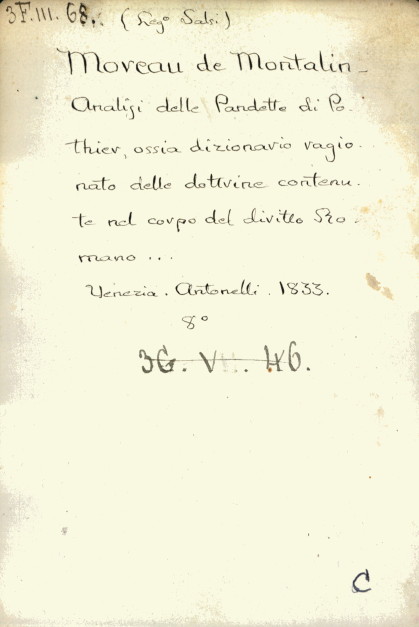 3F.III.68. (Reg° Salri)
Moreau de Montalin_
Analisi delle Pandette di Po.
thier, ossia dizionario ragio.
nato delle dottrine contenu.
te nel corpo del diritto Ro.
mano ...
Venezia. Antonelli. 1833.
8°
3G. VII. 46.
C